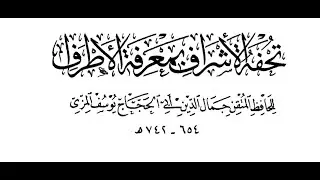 تحفة الأشراف بمعرفة الأطراف
للحافظ المتقن جمال الدين أبي الحجاج يوسف المزي
٦٥٤ - ٧٤٢ هـ